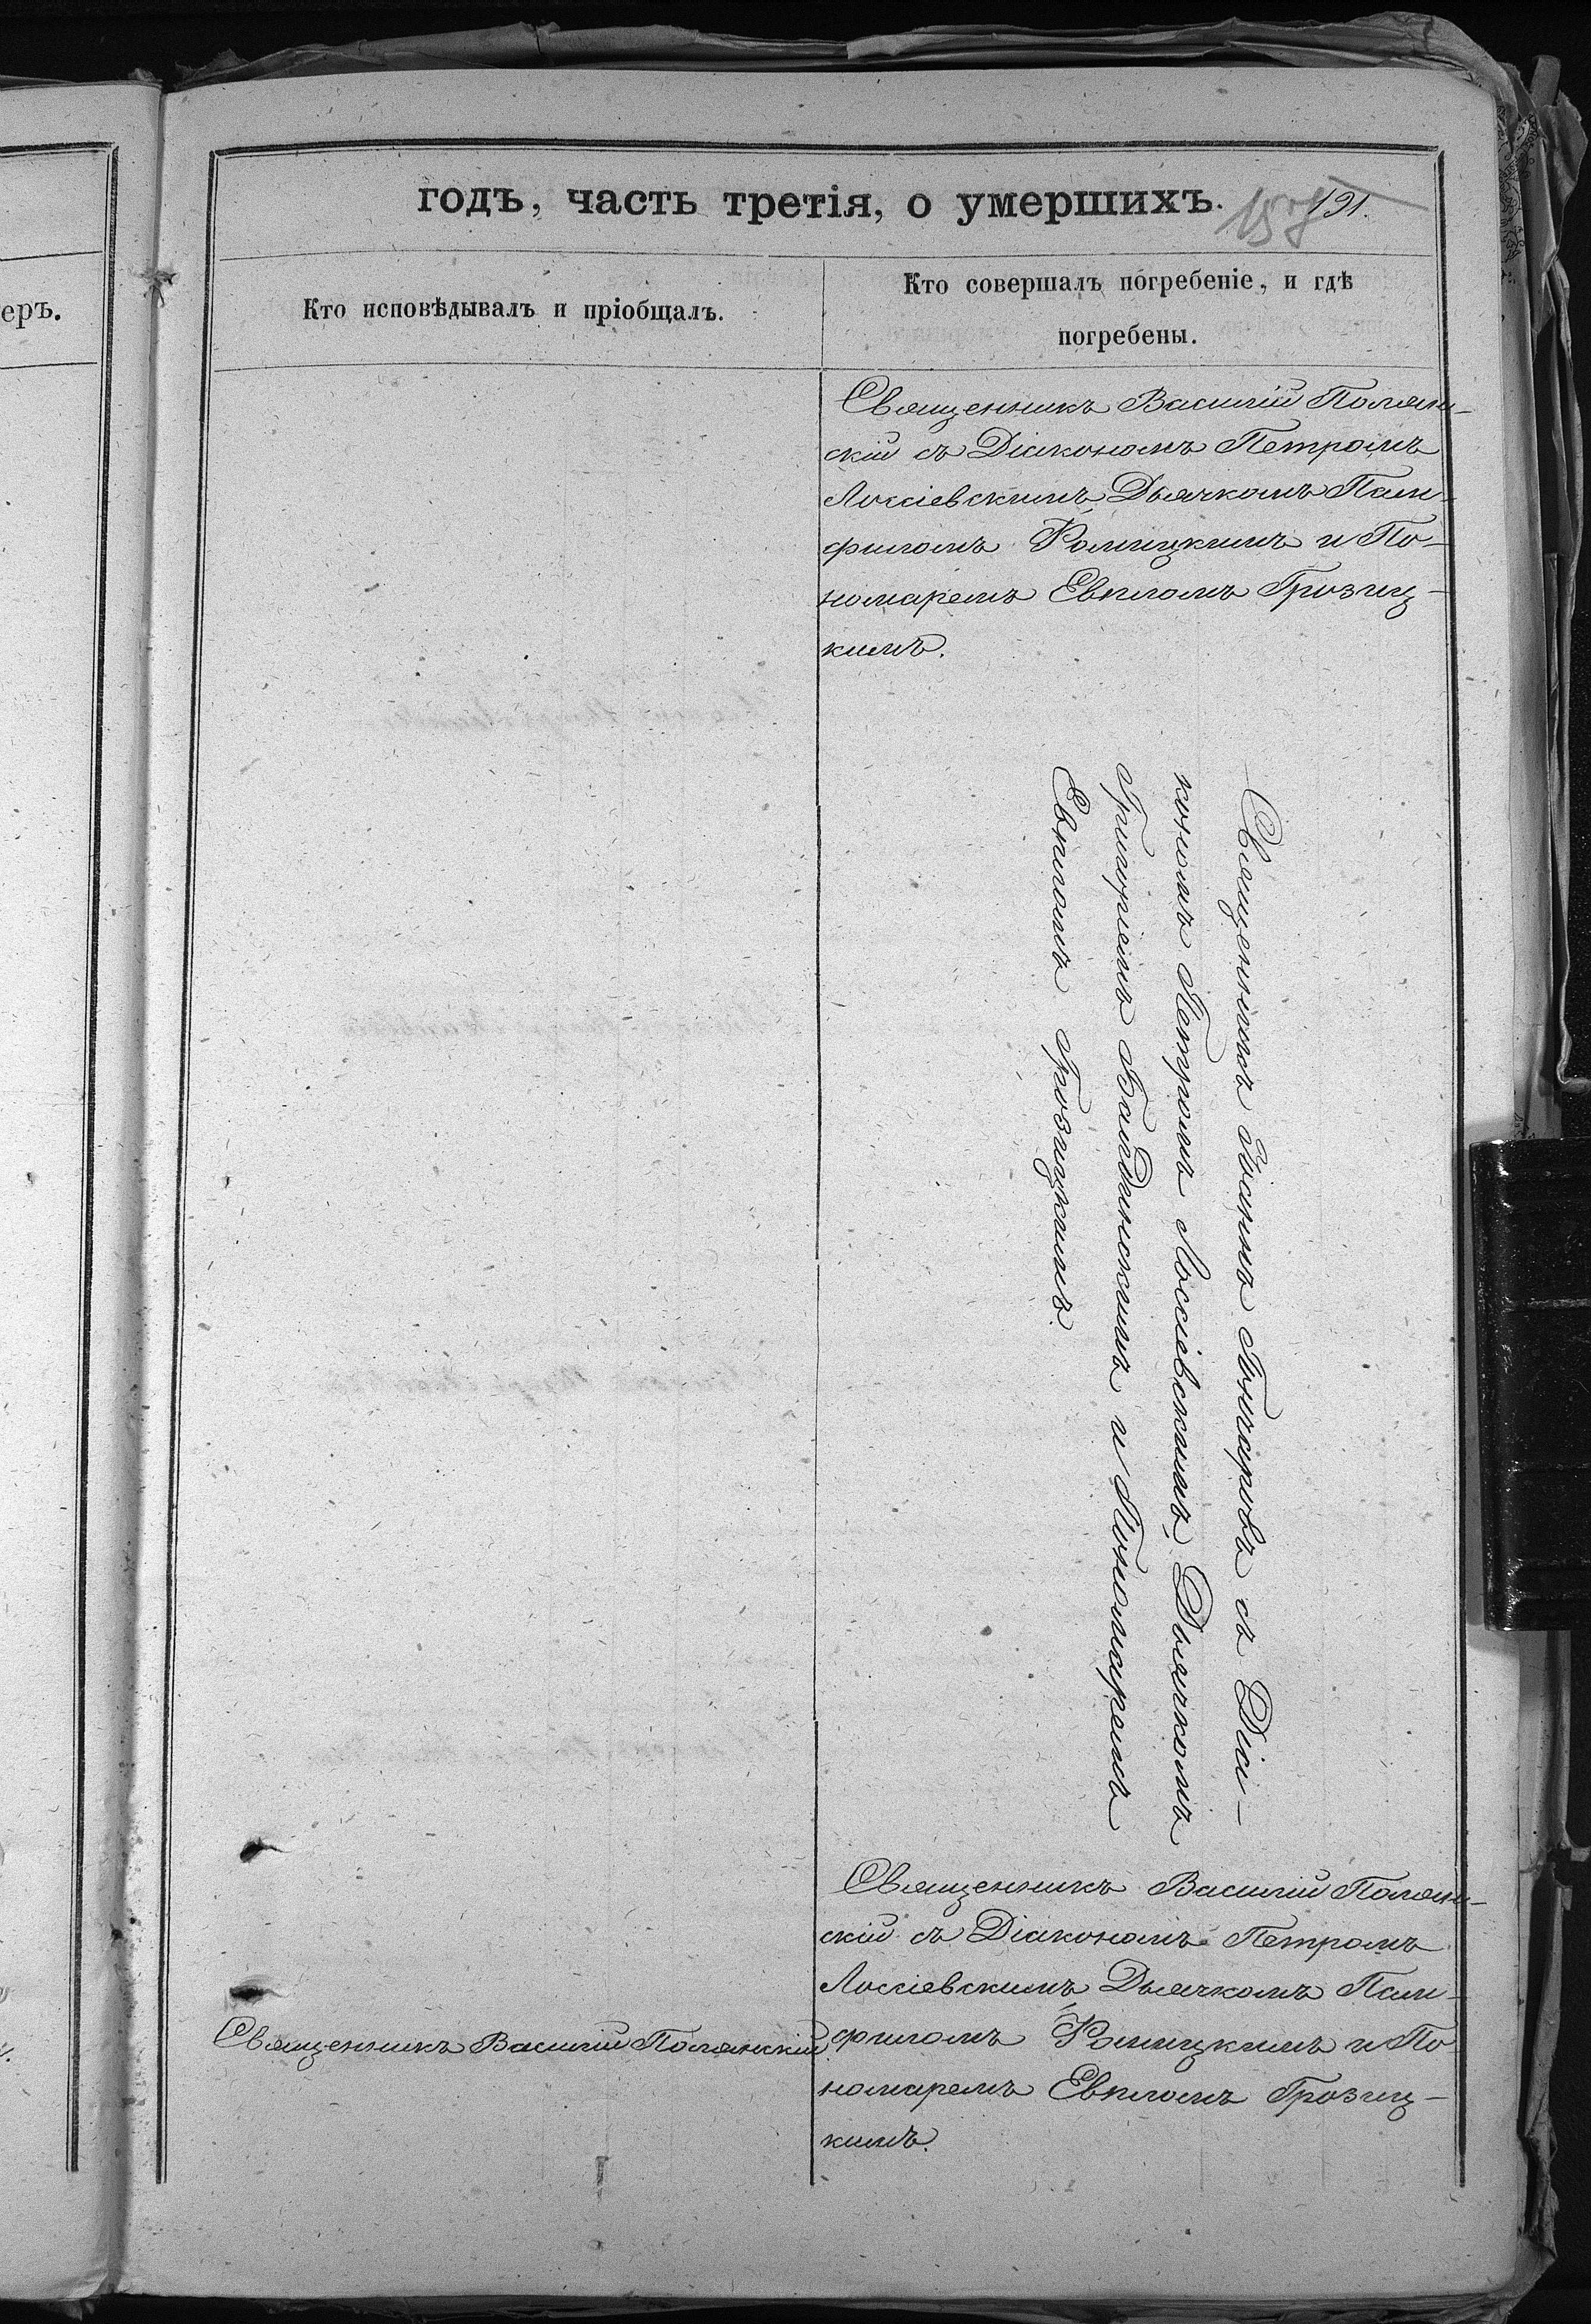 еръ.
годъ, часть третія, о умершихъ.
191.
Кто исповѣдывалъ и пріобщалъ.
Кто совершалъ погребеніе, и гдѣ
погребены.
Священникъ Василій Полян-
скій съ Діакономъ Петромъ
Лоссіевскимъ, Дьячкомъ Пам-
филомъ Ролицкимъ и По-
номаремъ Евпломъ Грозиц-
кимъ.
Священникъ Іоаннъ съ Діа-
кономъ Петромъ Лоссіевскимъ, Дьячкомъ
Григоріемъ Балдинскимъ и Пономаремъ
Евпломъ Грозицкимъ.
Священникъ Василій Полянскій
Священникъ Василій Полян-
скій съ Діакономъ Петромъ
Лоссіевскимъ, Дьячкомъ Пам-
филомъ Ролицкимъ и По
номаремъ Евпломъ Грозиц-
кимъ.